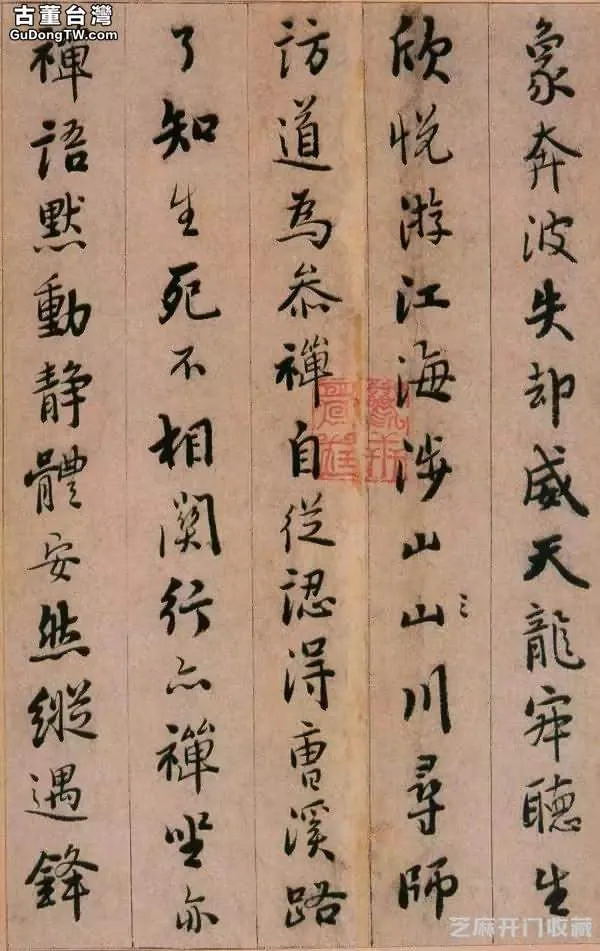 古董台灣
GuDongTW.com
象奔波失却威天龍寂聽生
欣悦游江海涉山山川尋師
訪道為叅禪自從認得曹溪路
了知生死不相關行亦禪坐亦
禪語默動静體安然縱遇鋒
芝麻开门收藏